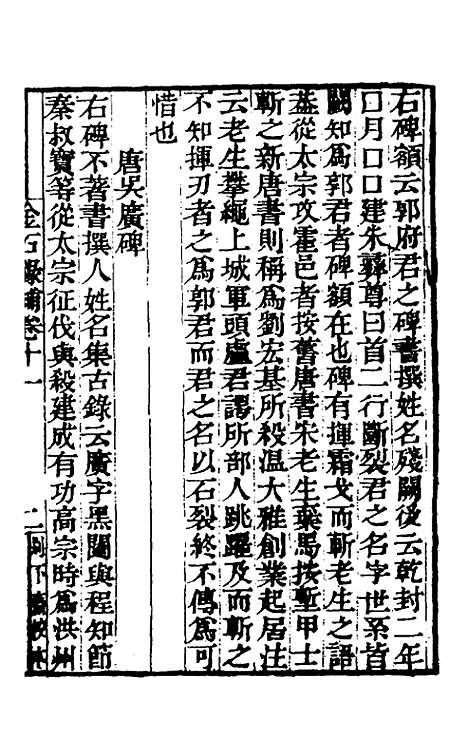 右碑額云郭府君之碑書撰姓名殘闕後云乾封二年
口月口口建朱彝尊曰首二行斷裂君之名字世系皆
闕知為郭君者碑額在也碑有揮霜戈而斬老生之語
葢從太宗攻霍邑者按舊唐書宋老生棄馬投塹甲士
斬之新唐書則稱為劉宏基所殺温大雅創業起居注
云老生攀繩上城軍頭盧君諤所部人跳躍及而斬之
不知揮刃者之為郭君而君之名以石裂終不傳為可
惜也
唐吳廣碑
右碑不著書撰人姓名集古錄云廣字黑闥與程知節
秦叔寶等從太宗征伐與殺建成有功高宗時為洪州
金石錄補卷十一
二